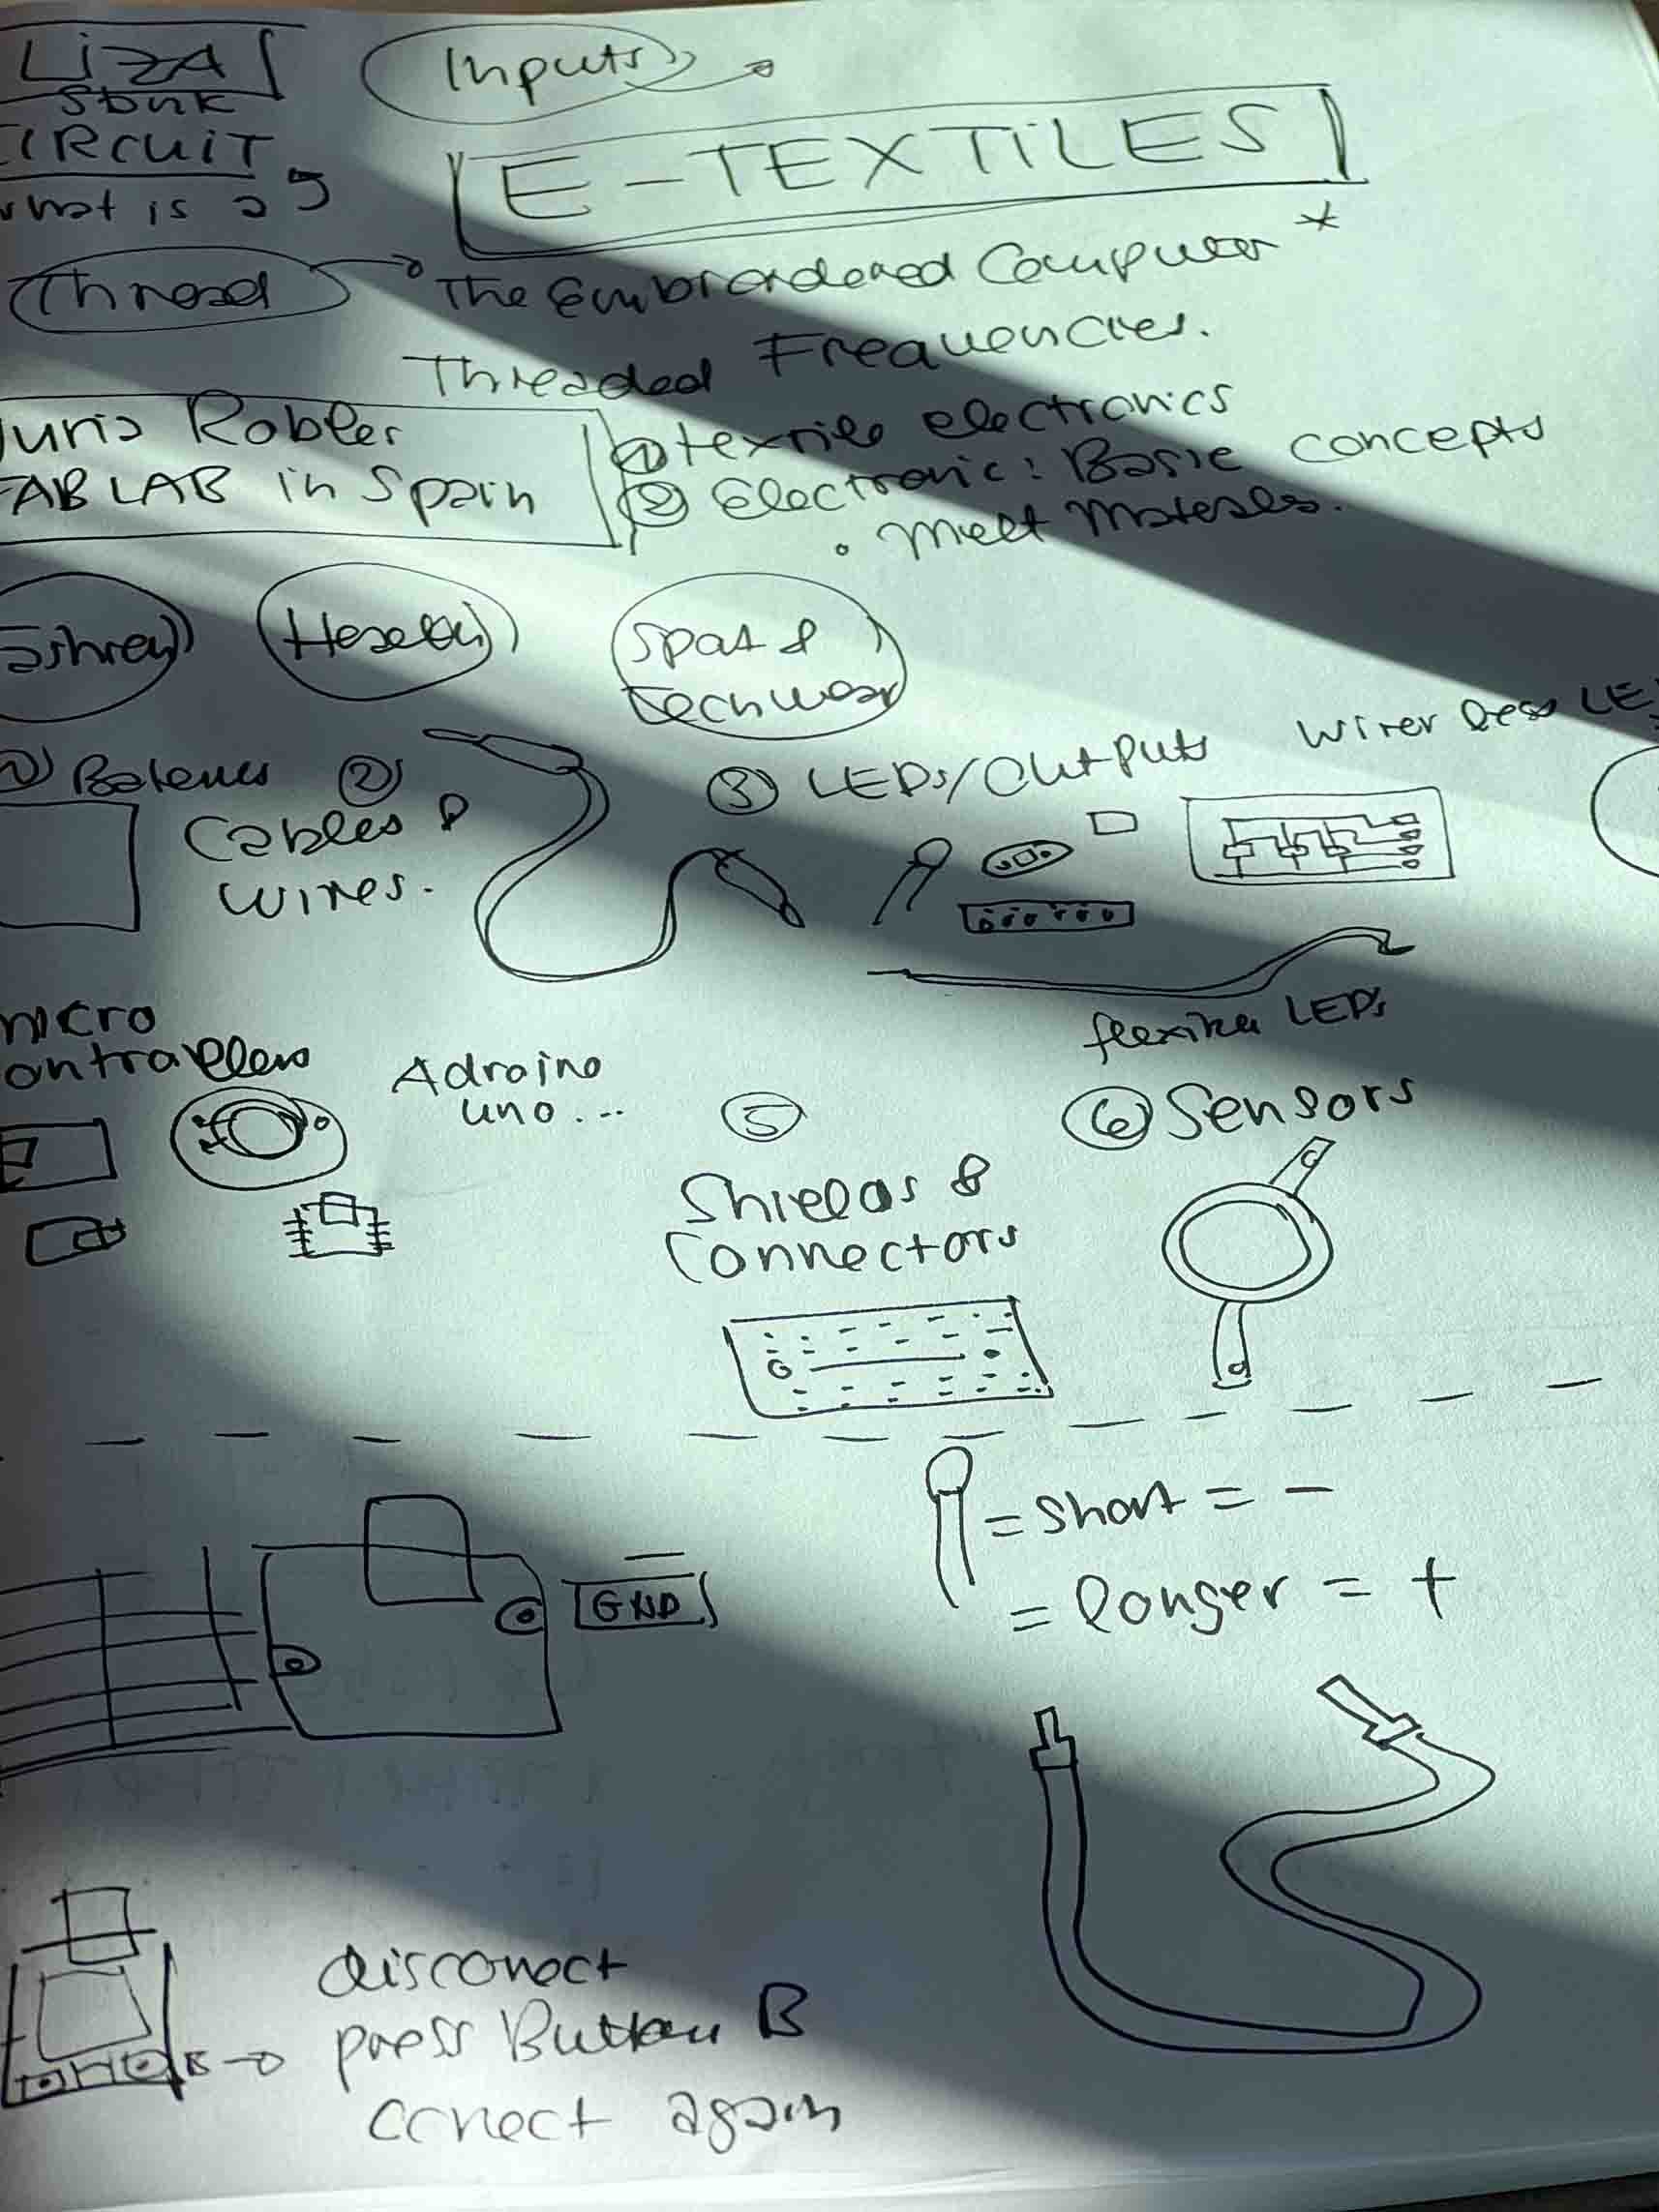 LizA
Stark
CIRCUIT
what is a
Inputs
E-TEXTILES
Thread
The Embroidered Computer *
Threaded Frequencies.
Robles
FAB LAB in Spain
1 textile electronics
2 Electronic: Basic concepts
. meet materials.
Health
Spat &
techwear
2
Cables &
wires.
3 LEDs/Outputs
LE
micro
controllers
Adroino
uno...
LEDs
5
Shields &
Connectors
6 Sensors
= short = -
= longer = +
GND
-
disconect
press Button B
conect again